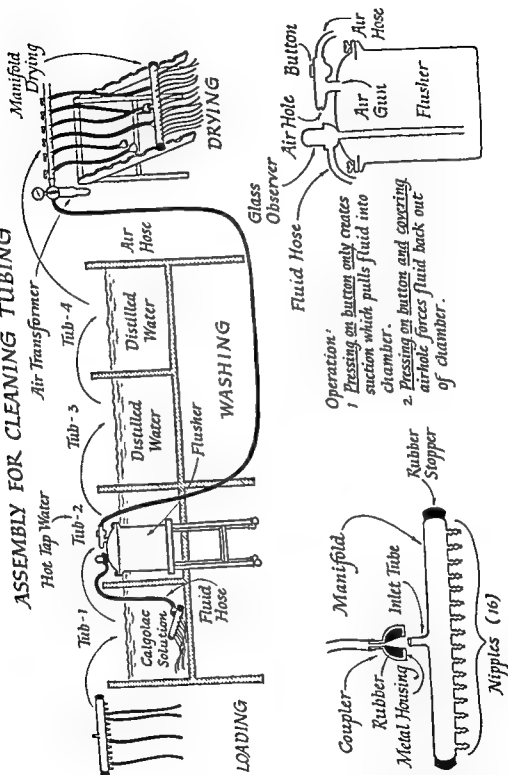 ASSEMBLY FOR CLEANING TUBING
Hot Tap Water
Tub-1
Tub-2
Tub-3
Tub-4
Air Transformer
Manifold
Drying
Calgolac
Solution
Fluid
Hose
Flusher
Distilled
Water
Distilled
Water
Air
Hose
LOADING
WASHING
DRYING
Coupler
Rubber
Metal Housing
Manifold
Inlet Tube
Rubber
Stopper
Nipples (16)
Fluid Hose
Glass
Observer
Air Hole
Button
Air
Hose
Air
Gun
Flusher
Operation:
1 Pressing on button only creates
suction which pulls fluid into
chamber.
2. Pressing on button and covering
airhole forces fluid back out
of chamber.